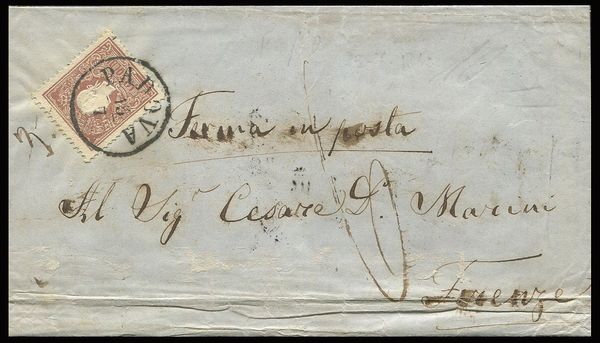 PADOVA
12
7
Ferma in posta
Al Sigʳ Cesare Dʳ Marini
Firenze